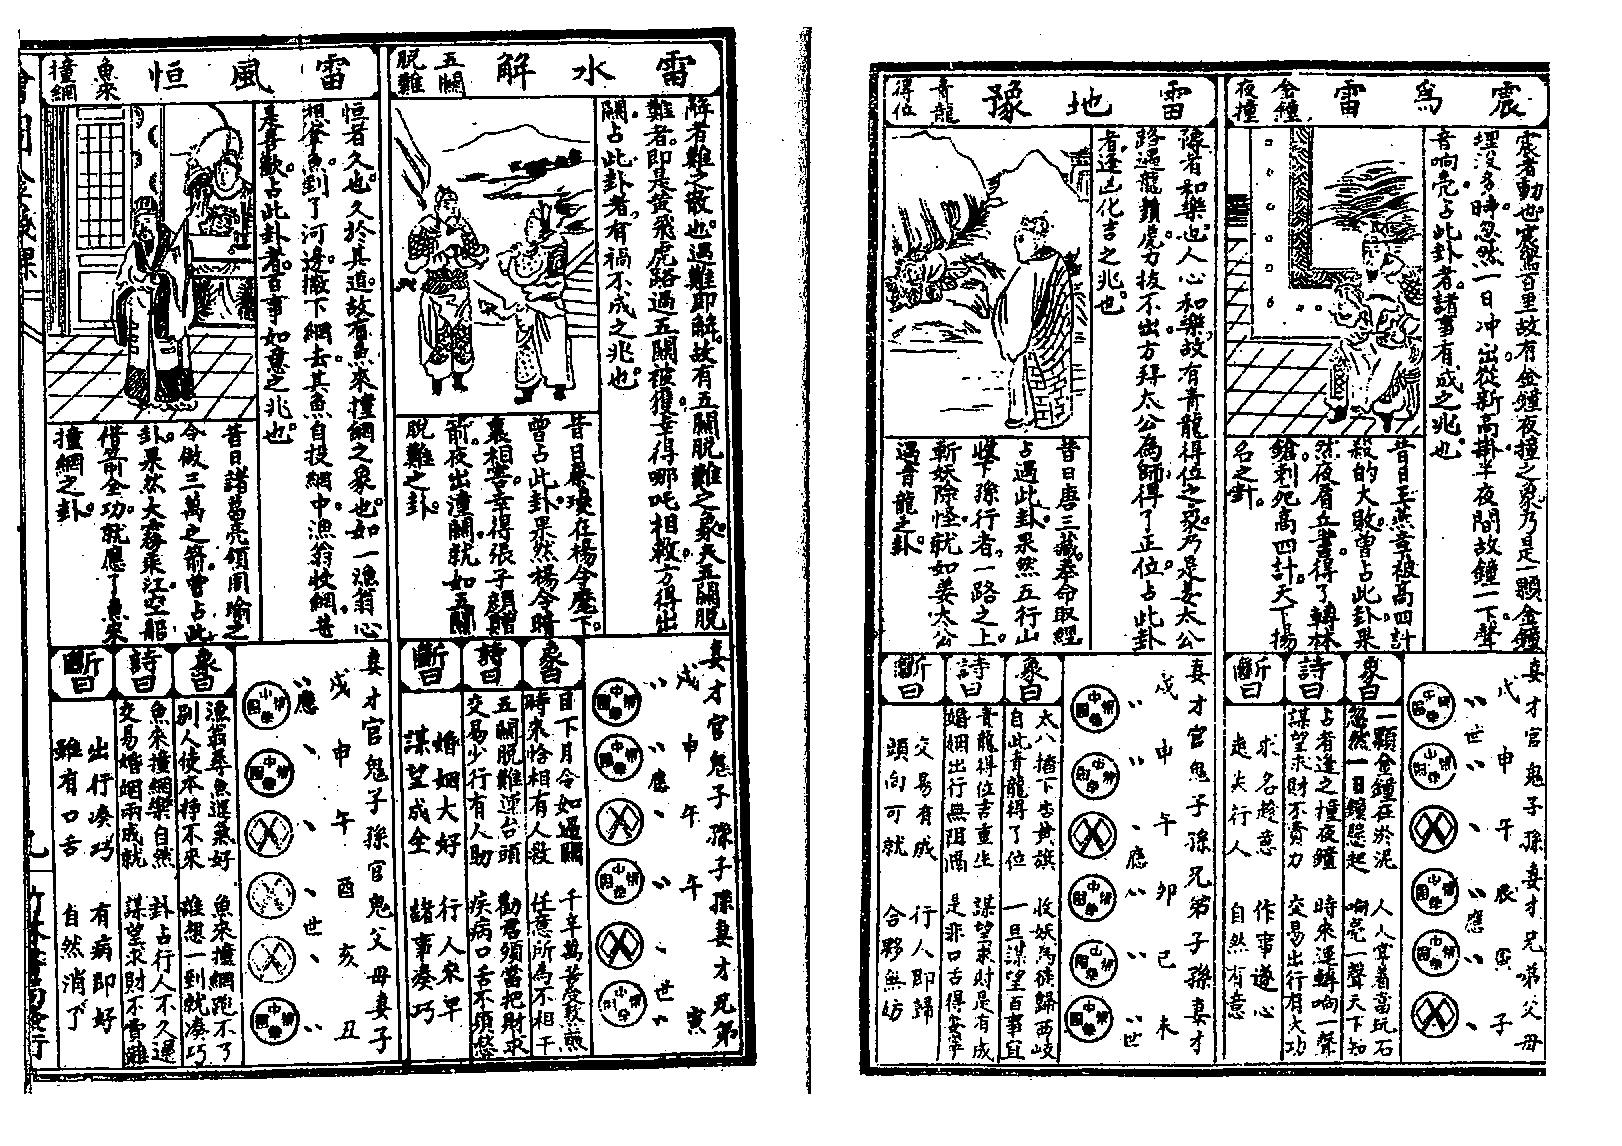 震為雷
金鐘
夜撞
震者動也震驚百里故有金鐘夜撞之象乃是一顆金鐘
埋沒多時忽然一日冲出從新高掛半夜間故鐘一下聲
音响亮占此卦者諸事有成之兆也
昔日孟燕童被高四計
殺的大敗曾占此卦果
然夜看兵書得了轉林
鎗刺死高四計天下揚
名之卦
妻才官鬼子孫妻才兄弟父母
戌申午辰寅子
世
應
象曰
一顆金鐘在於泥 人人穿着當玩石
忽然一日鐘懸起 响亮一聲天下知
詩曰
占者逢之撞夜鐘 時來運轉响一聲
謀望求財不費力 交易出行有大功
斷曰
求名趁意 作事遂心
走失行人 自然有意
雷地豫
青龍
得位
豫者和樂也人心和樂故有青龍得位之象乃是姜太公
路遇龍鬚虎力拔不出方拜太公為師得了正位占此卦
者逢凶化吉之兆也
昔日唐三藏奉命取經
占遇此卦果然五行山
收下孫行者一路之上
斬妖除怪就如姜太公
遇青龍之卦
妻才官鬼子孫兄弟子孫妻才
戌申午卯巳未
應
世
象曰
太公插下杏黃旗 收妖為徒歸西岐
自此青龍得了位 一旦謀望百事宜
詩曰
青龍得位吉重生 謀望求財是有成
婚姻出行無阻隔 是非口舌得安寧
斷曰
交易有成 行人即歸
頭向可就 合夥無妨
雷水解
五關
脫難
解者難之散也遇難即解故有五關脫難之象夫五關脫
難者即是黃飛虎路過五關被獲幸得哪吒相救方得出
關占此卦者有禍不成之兆也
昔日秦瓊在楊令麾下
曾占此卦果然楊令暗
裏相害幸得張子顔贈
箭夜出潼關就如五關
脫難之卦
妻才官鬼子孫子孫妻才兄弟
戌申午午辰寅
應
世
象曰
目下月令如過關 千辛萬苦受熬煎
時來恰相有人救 任意所為不相干
詩曰
五關脫難運抬頭 勸君須當把財求
交易少行有人助 疾病口舌不須愁
斷曰
婚姻大好 行人來早
謀望成全 諸事湊巧
雷風恒
魚來
撞網
恒者久也久於其道故有魚來撞網之象也如一漁翁心
想拿魚到了河邊撒下網去其魚自投網中漁翁收網甚
是喜歡占此卦者百事如意之兆也
昔日諸葛亮領周瑜之
令做三萬之箭曾占此
卦果然大霧乘江空船
借箭全功就應了魚來
撞網之卦
妻才官鬼子孫官鬼父母妻子
戌申午酉亥丑
應
世
象曰
漁翁尋魚運氣好 魚來撞網跑不了
別人使本掙不來 誰想一到就湊巧
詩曰
魚來撞網樂自然 卦占行人不久還
交易婚姻兩成就 謀望求財不費難
斷曰
出行湊巧 有病即好
雖有口舌 自然消了